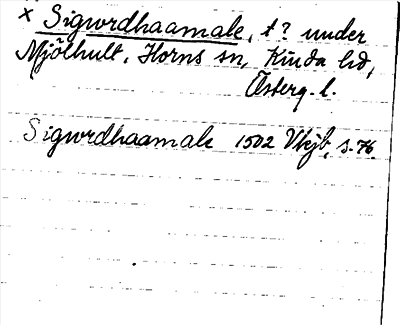 × Sigwrdhaamale, t? under
Mjölhult, Horns sn, Kinda hd,
Österg. l.
Sigwrdhaamale 1502 Vkjb, s. 76.